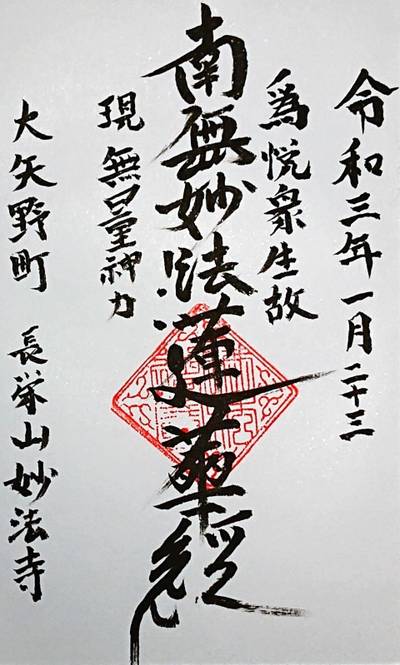 令和三年一月二十三
為悦衆生故
南無妙法蓮華経
現無量神力
大矢野町 長栄山妙法寺